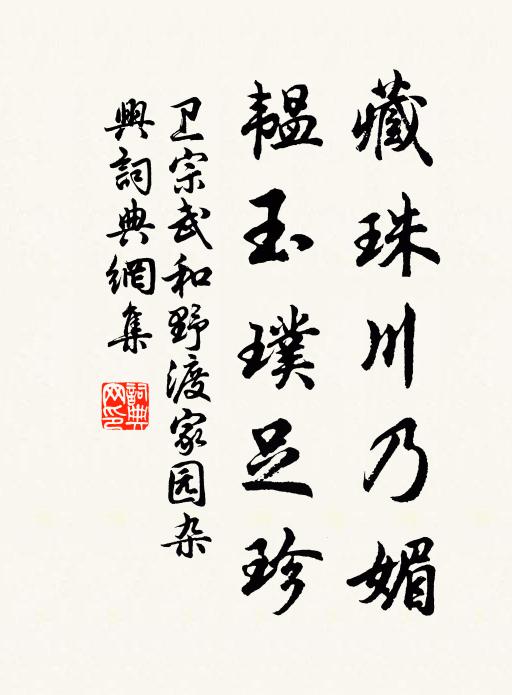 藏珠川乃媚
韫玉璞足珍
卫宗武和野渡家园杂
興詞典網集
詞典网印